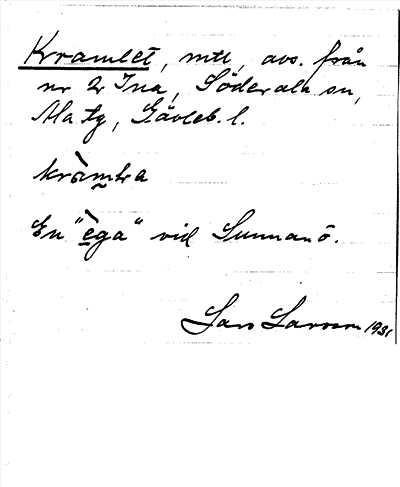 Kramlet, mtl, avs. från
nr 2 Ina, Söderala sn,
Ala tg, Gävleb. l.
kràmla
En "èga" vid Sunnanö.
Lars Larsson 1931